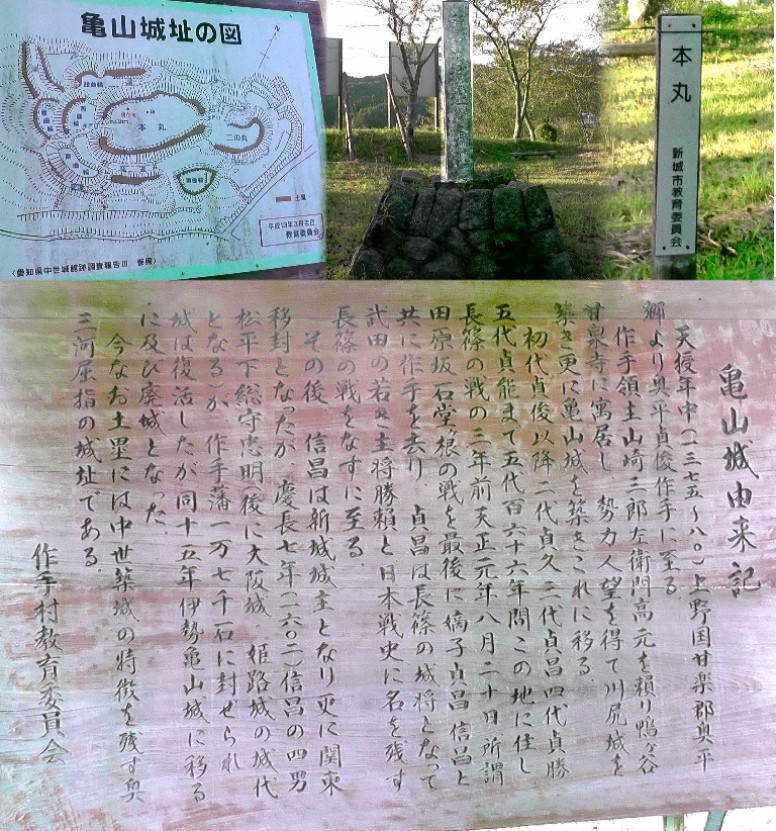 亀山城址の図
本丸
二の丸
土塁
教育委員会
本丸
新城市教育委員会
亀山城由来記
天授年中(一三七五〜八〇)上野国甘楽郡奥平
郷より奥平貞俊作手に至る
作手領主山崎三郎左衛門高元を頼り鴨ヶ谷
甘泉寺に寓居し勢力人望を得て川尻城を
築き更に亀山城を築きこれに移る.
初代貞俊以降二代貞久三代貞昌四代貞勝
五代貞能まで五代百六十六年間この地に住し
長篠の戦の三年前天正元年八月二十日所謂
田原坂石堂ヶ根の戦を最後に嫡子貞昌信昌と
共に作手を去り.貞昌は長篠の城将となって
武田の若き主将勝頼と日本戦史に名を残す
長篠の戦をなすに至る
その後.信昌は新城城主となり更に関東
移封となったが.慶長七年(一六〇二)信昌の四男
松平下総守忠明後に大阪城.姫路城の城代
となる)が.作手藩一万七千石に封ぜられ
城は復活したが同十五年伊勢亀山城に移る
に及び廃城となった.
今なお土塁には中世築城の特徴を残す奥
三河屈指の城址である.
作手村教育委員会